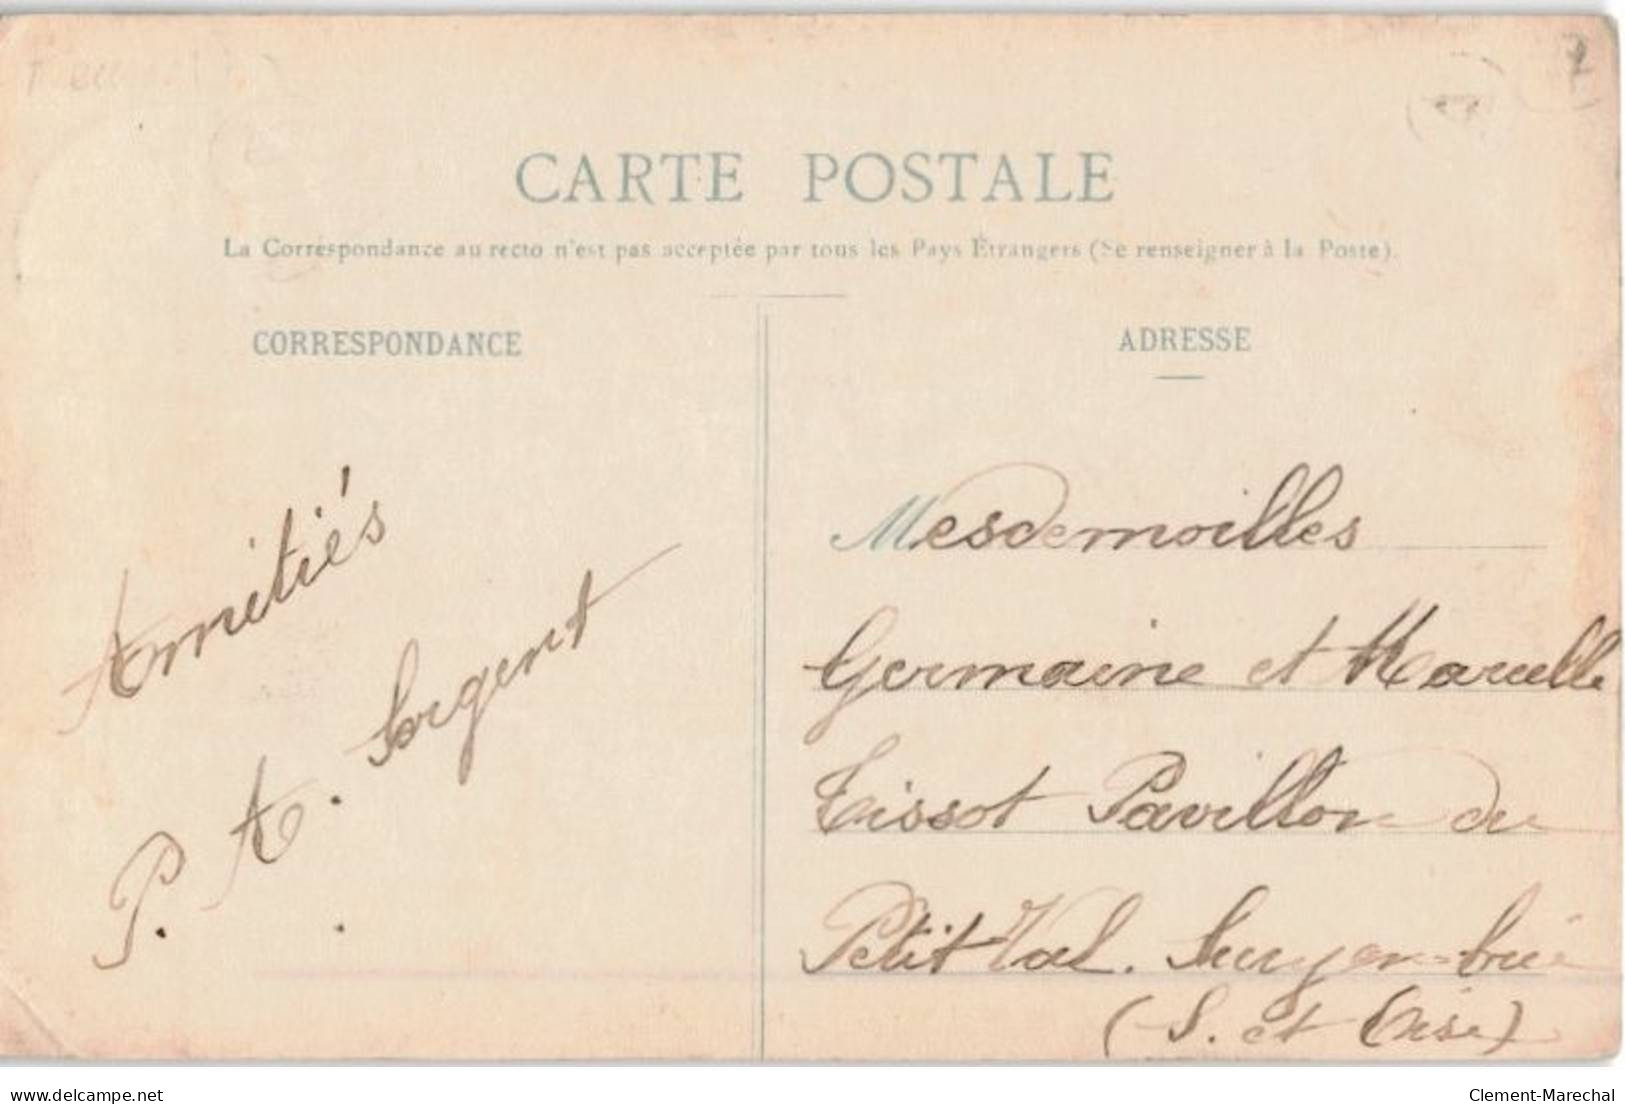 CARTE POSTALE
La Correspondance au recto n'est pas acceptée par tous les Pays Étrangers (Se renseigner à la Poste).
CORRESPONDANCE
ADRESSE
Amitiés
P. A. Sorgent
Mesdemoilles
Germaine et Marcelle
Tissot Pavillon du
Petit Val. Sucy en-brie
(S. et Oise)
delcampe.net
Clement-Marechal